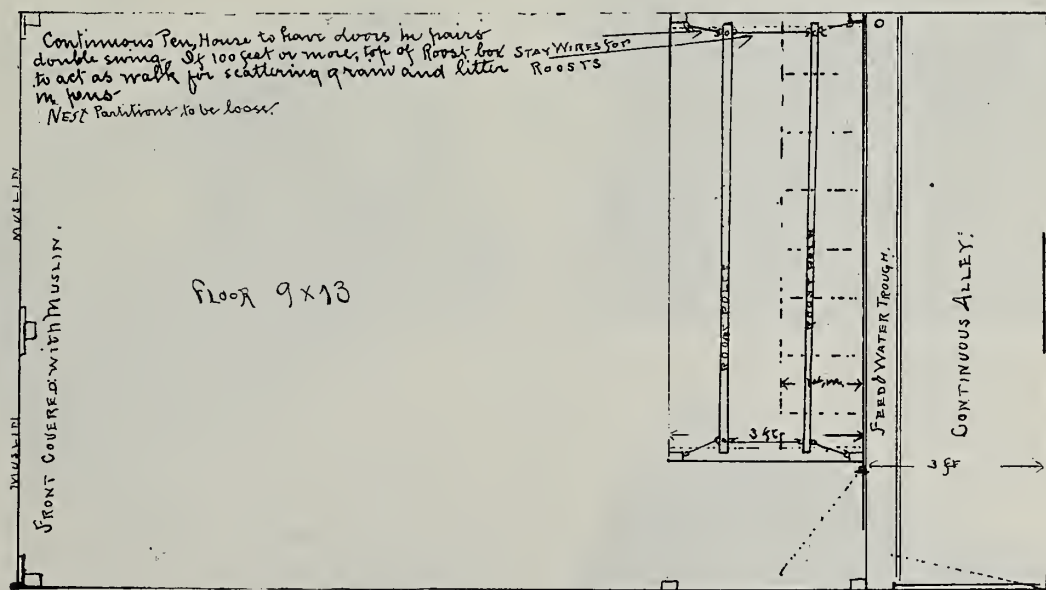 Continuous Pen, House to have doors in pairs
double swing. If 100 feet or more, top of Roost box
to act as walk for scattering grain and litter
in pens
Nest Partitions to be loose.
STAY WIRES for
ROOSTS
MUSLIN
MUSLIN
FRONT COVERED WITH MUSLIN.
FLOOR 9 X 13
ROOST POLE
ROOST POLE
3 ft
FEED & WATER TROUGH.
CONTINUOUS ALLEY.
3 ft